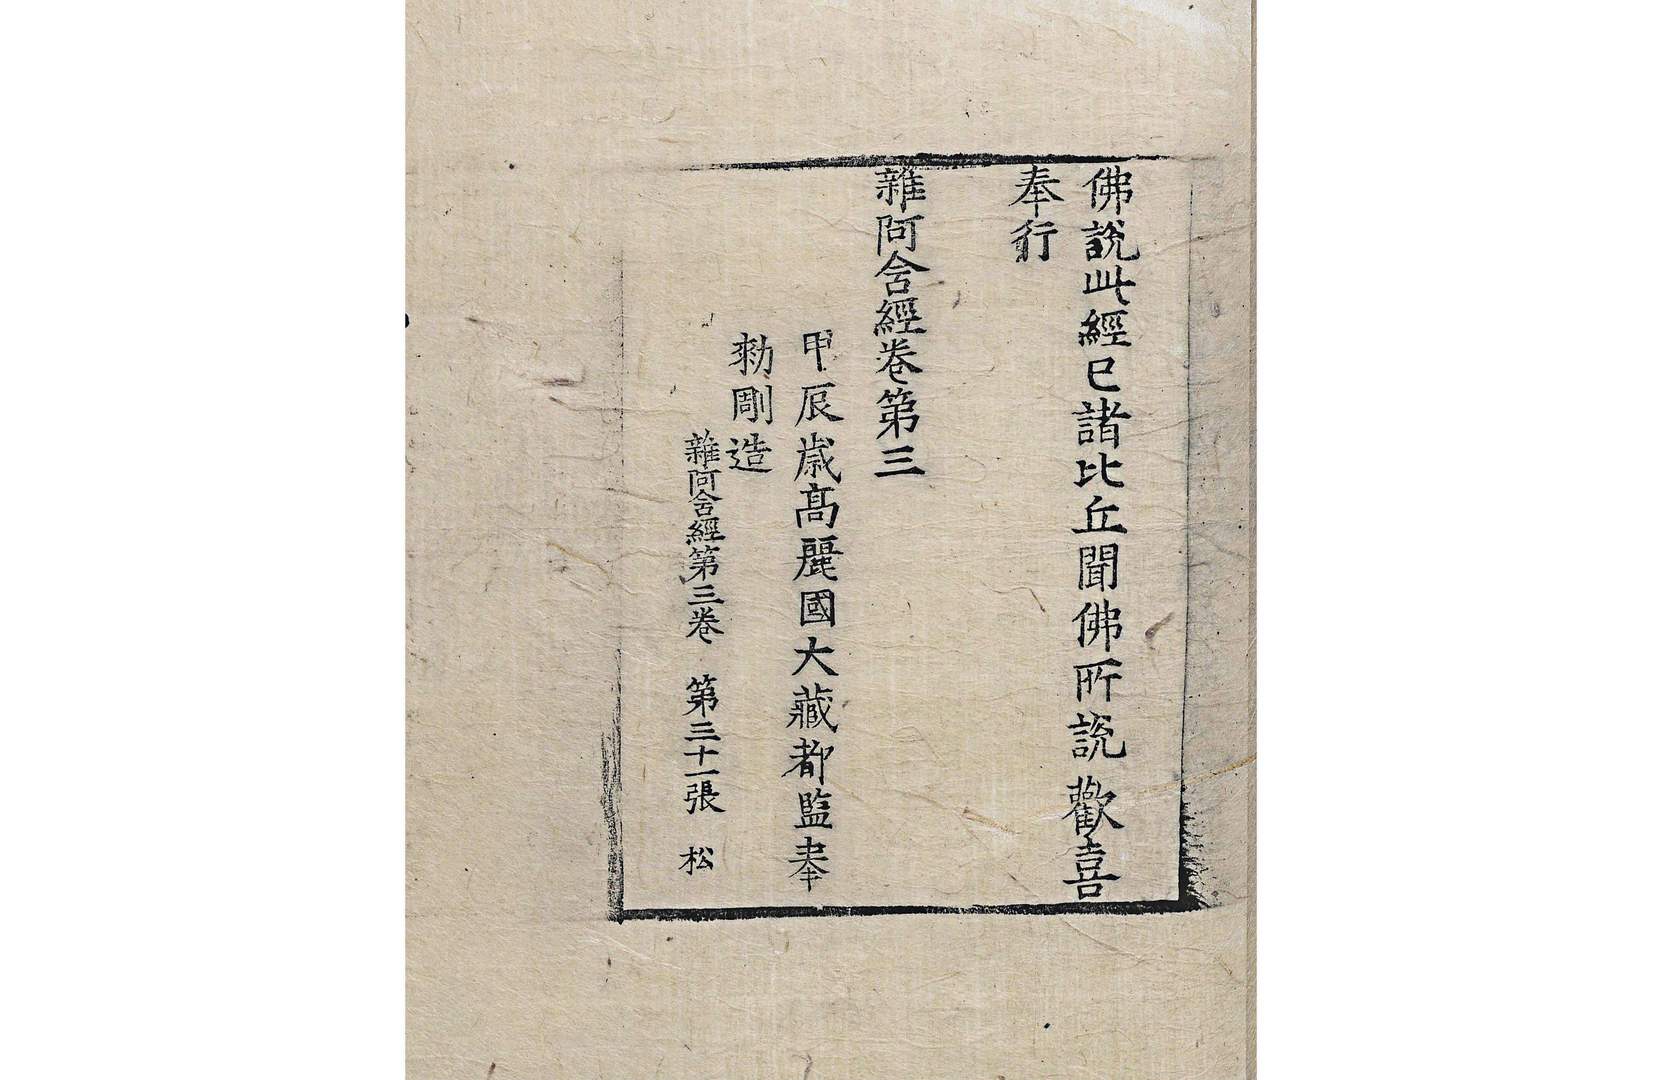 佛說此經已諸比丘聞佛所說歡喜
奉行
雜阿含經卷第三
甲辰歳高麗國大藏都監奉
勑彫造
雜阿含經第三卷 第三十一張 松